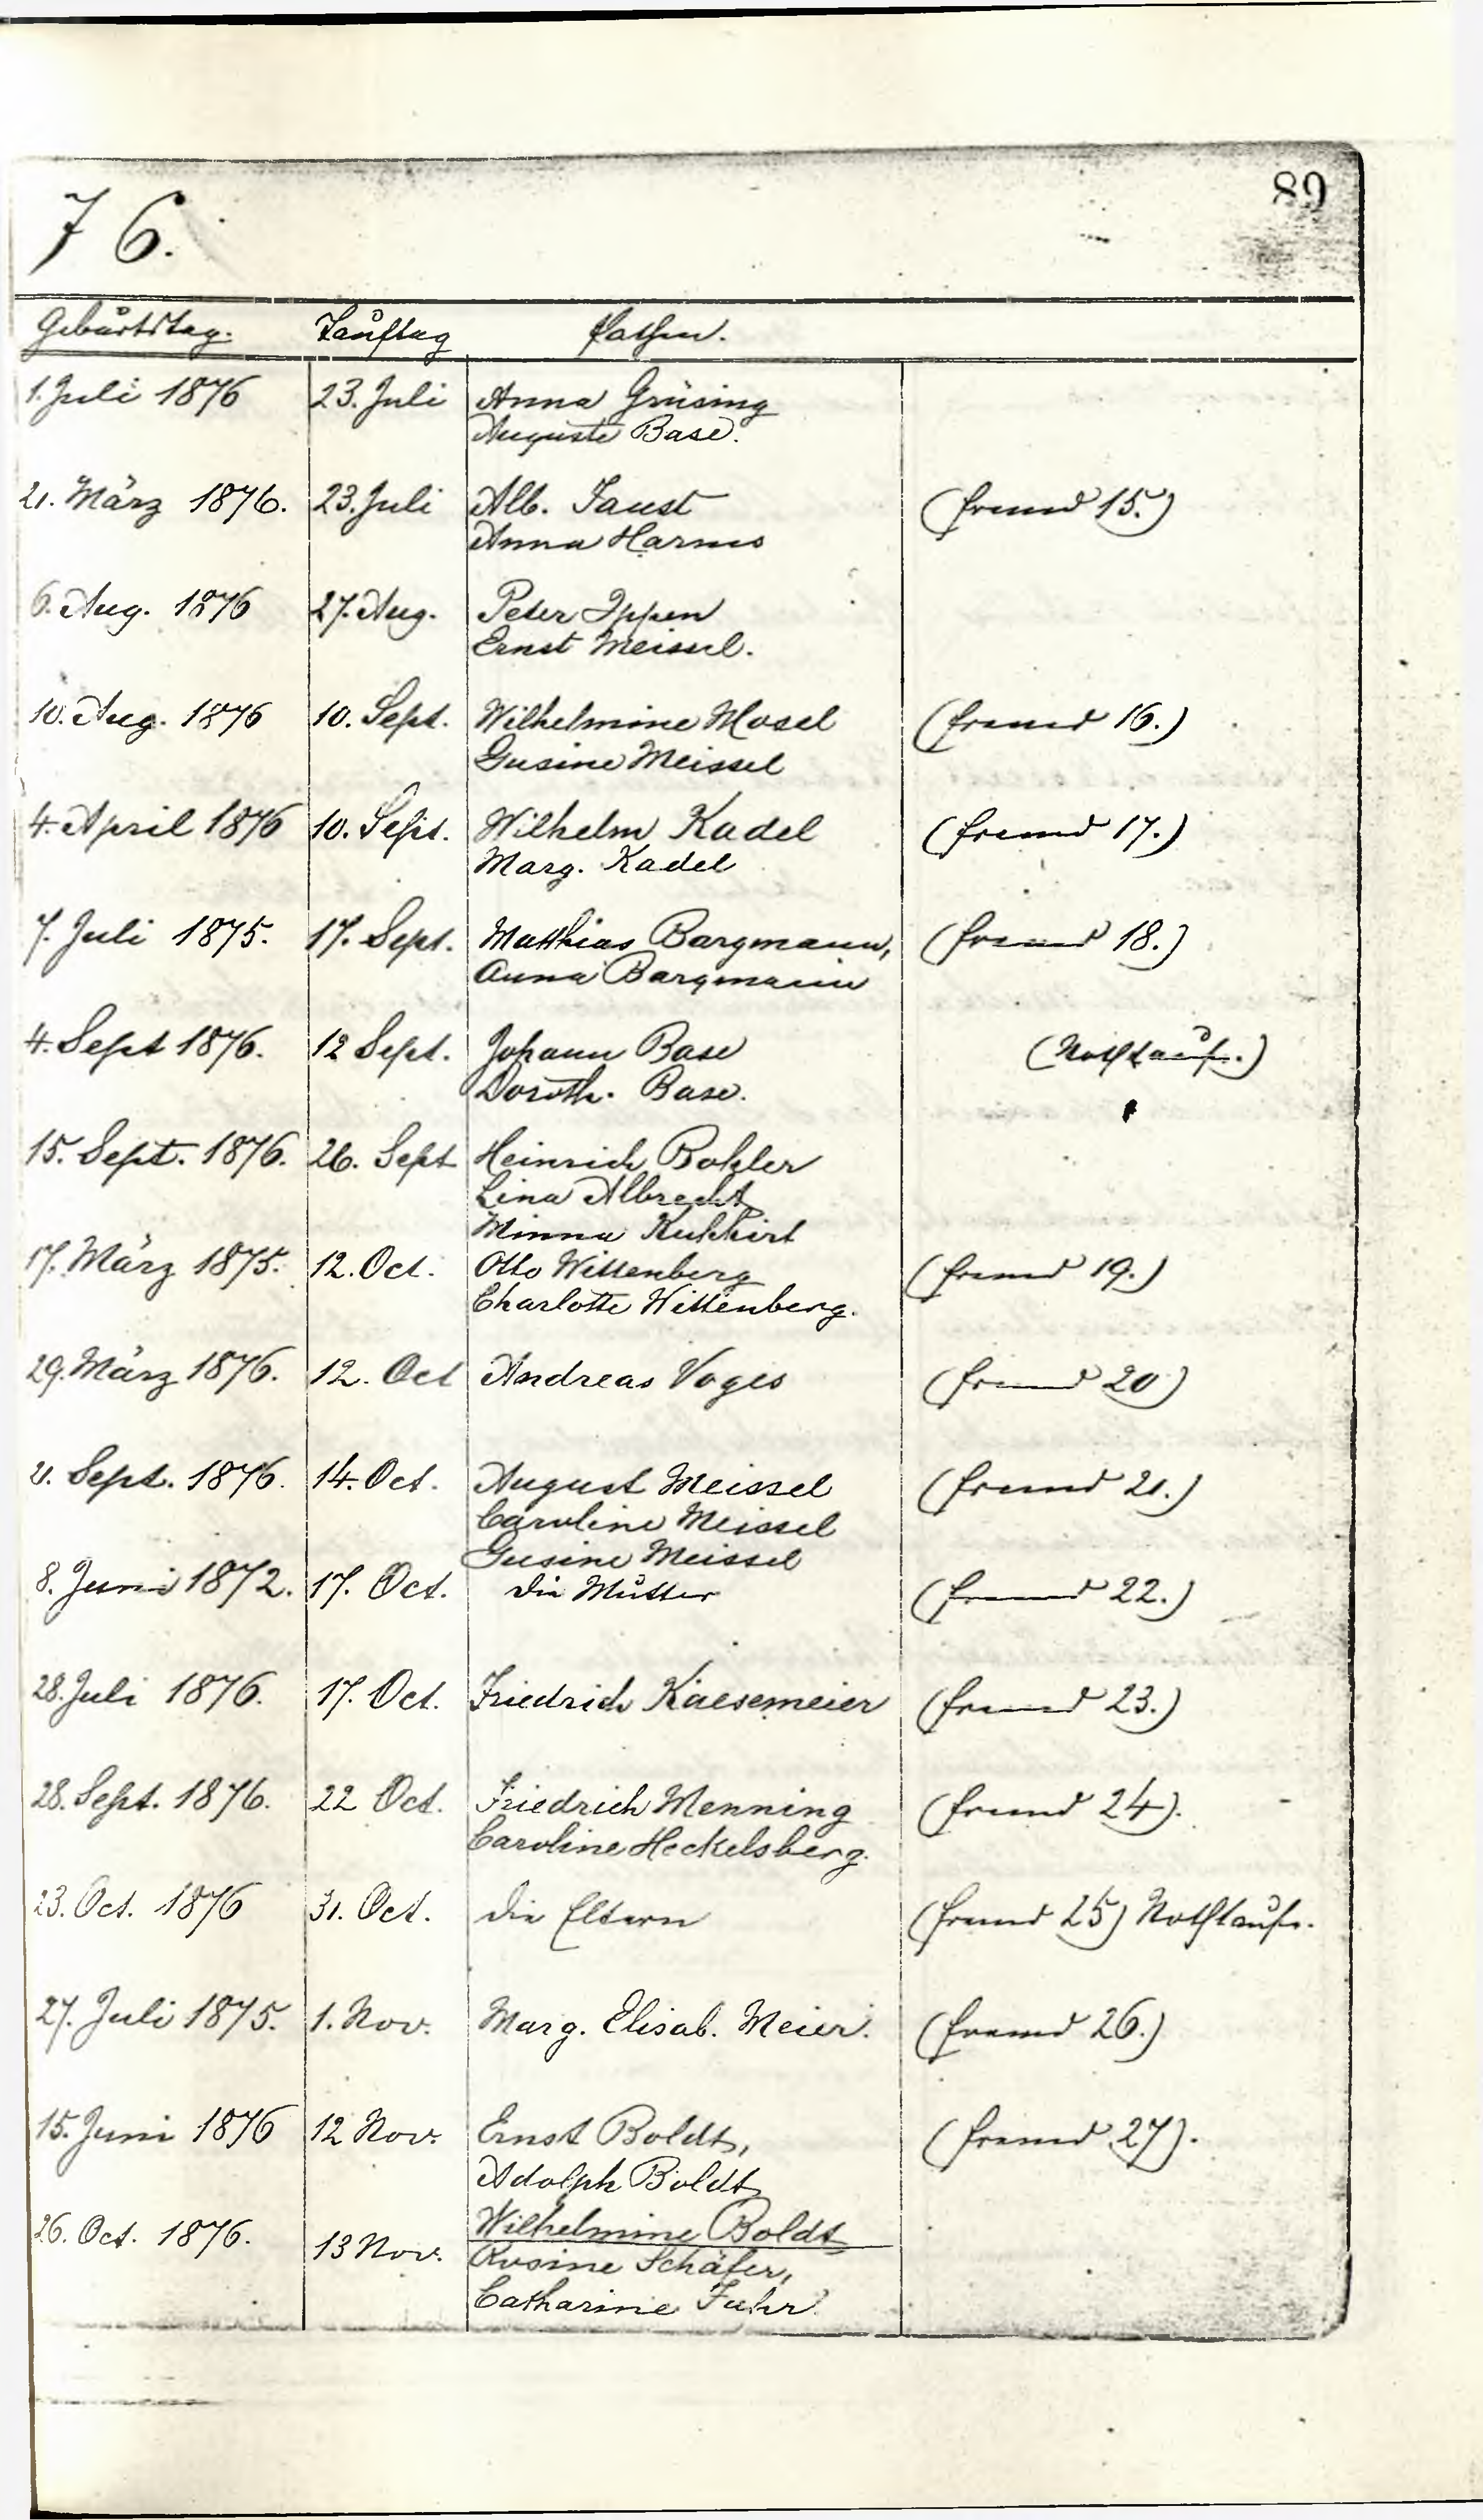 89
76.
Geburtstag. Tauftag Pathen.
1. Juli 1876 23. Juli Anna Grüsing
Auguste Base.
21. März 1876. 23. Juli Alb. Faust (fremd 15.)
Anna Harms
6. Aug. 1876 27. Aug. Peter Ippen
Ernst Meissel.
10. Aug. 1876 10. Sept. Wilhelmine Mosel (fremd 16.)
Gusine Meissel
4. April 1876 10. Sept. Wilhelm Kadel (fremd 17.)
Marg. Kadel
7. Juli 1875. 17. Sept. Matthias Bargmann, (fremd 18.)
Anna Bargmann
4. Sept 1876. 12 Sept. Johann Base (Nothtaufe.)
Doroth. Base.
15. Sept. 1876. 26. Sept Heinrich Bohler
Lina Albrecht
Minna
17. März 1875. 12. Oct. Otto Wittenberg (fremd 19.)
Charlotte Wittenberg.
29. März 1876. 12. Oct Andreas Voges (fremd 20)
21. Sept. 1876. 14. Oct. August Meissel (fremd 21.)
Caroline Meissel
Gusine Meissel
8. Juni 1872. 17. Oct. die Mutter (fremd 22.)
28. Juli 1876. 17. Oct. Friedrich Kaesemeier (fremd 23.)
28. Sept. 1876. 22 Oct. Friedrich Menning (fremd 24).
Caroline Heckelsberg.
23. Oct. 1876 31. Oct. die Eltern (fremd 25) Nothtaufe.
27. Juli 1875. 1. Nov. Marg. Elisab. Meier. (fremd 26.)
15. Juni 1876 12 Nov. Ernst Boldt, (fremd 27).
Adolph Boldt
Wilhelmine Boldt
26. Oct. 1876. 13 Nov. Rosine Schäfer,
Catharine Fuhr